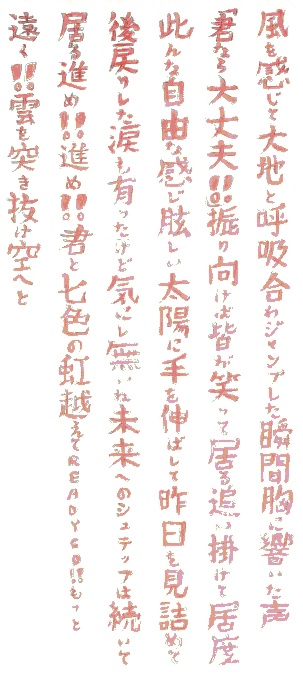 風を感じて大地と呼吸合わジャンプした瞬間胸に響いた声
『君なら大丈夫!!振り向けば皆が笑って居る追い掛けて居度
此んな自由な感じ眩しい太陽に手を伸ばして昨日を見詰めて
後戻りした涙も有ったけど気にし無いね未来へのシュテップは続いて
居る進め!!進め!!君と七色の虹越えてREADYGO!!もっと
遠く!!雲を突き抜け空へと